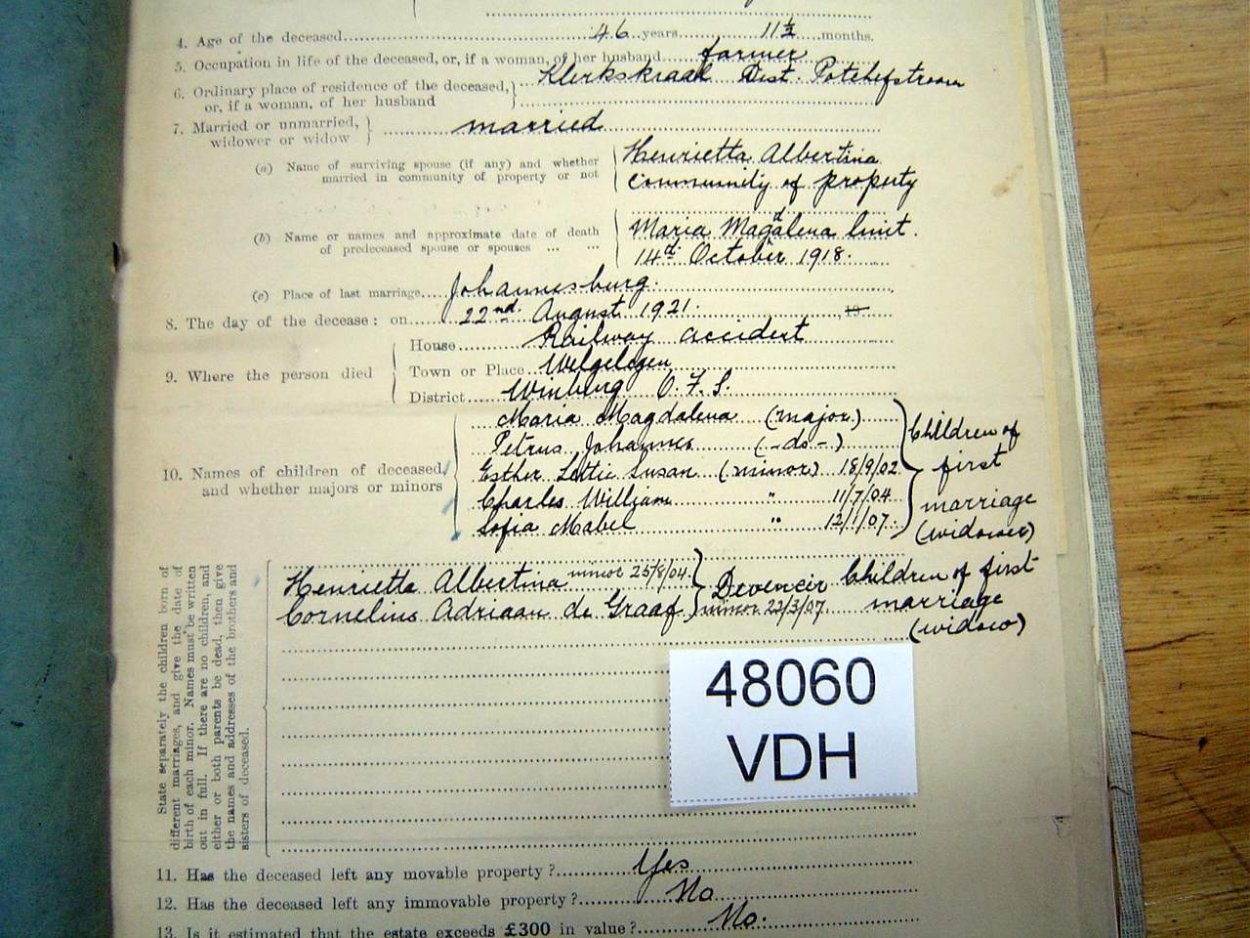 4. Age of the deceased 46 years 11½ months.
5. Occupation in life of the deceased, or, if a woman, of her husband farmer
6. Ordinary place of residence of the deceased, or, if a woman, of her husband } Klerkskraal Dist. Potchefstroom
7. Married or unmarried, widower or widow } married
(a) Name of surviving spouse (if any) and whether married in community of property or not
Henrietta Albertina
community of property
(b) Name or names and approximate date of death of predeceased spouse or spouses ... ...
Maria Magdalena
14th October 1918.
(c) Place of last marriage Johannesburg.
8. The day of the decease: on 22nd August 1921. 19
9. Where the person died
House Railway accident
Town or Place Welgelegen
District Winburg O.F.S.
10. Names of children of deceased, and whether majors or minors
Maria Magdalena (major)
Petrus Johannes (-do-)
Esther Lettie Susan (minor) 18/9/02
Charles William " 11/7/04
Sofia Mabel " 12/1/07.
Children of
first
marriage
(widower)
State separately the children born of
different marriages, and give the date of
birth of each minor. Names must be written
out in full. If there are no children, and
either or both parents be dead, then give
the names and addresses of the brothers and
sisters of deceased.
Henrietta Albertina minor 25/8/04
Cornelius Adriaan de Graaf minor 22/3/07.
Children of first
marriage
(widow)
48060
VDH
11. Has the deceased left any movable property? Yes
12. Has the deceased left any immovable property? No
13. Is it estimated that the estate exceeds £300 in value? No.